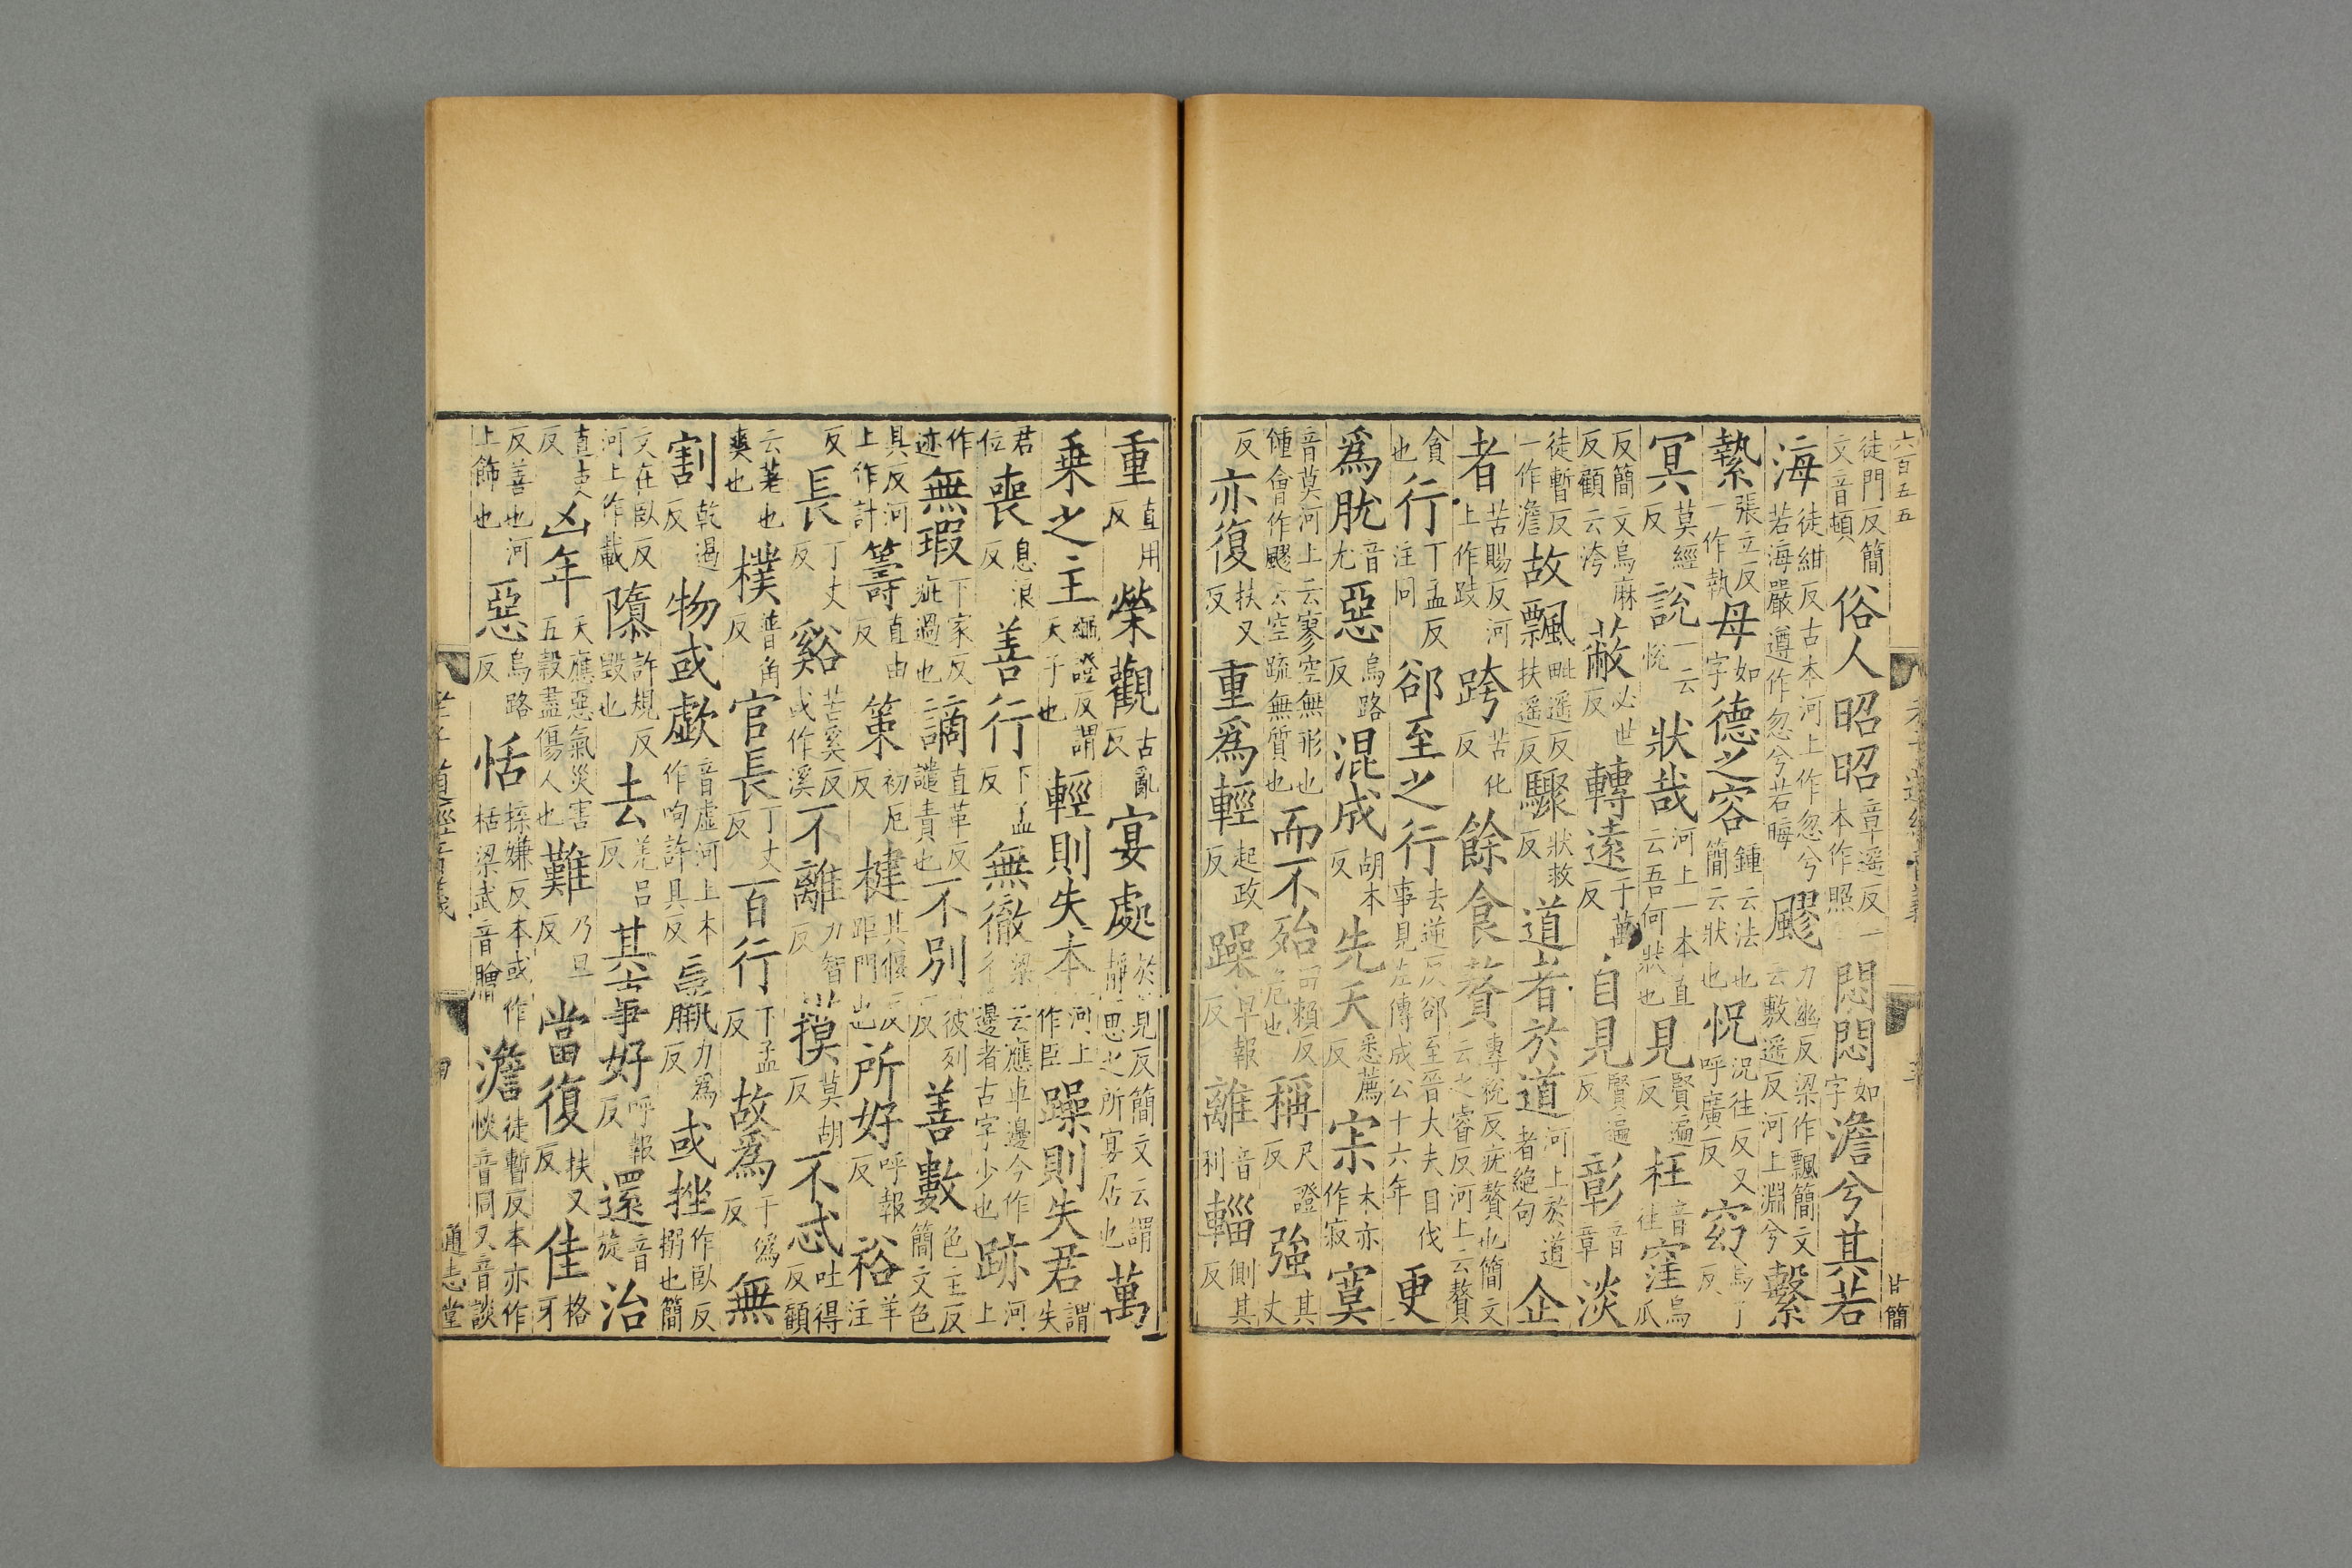 六百五五
徒門反簡文音頓俗人昭昭章遥反一本作照悶悶如字澹兮其若
海徒紺反古本河上作忽兮若海嚴遵作忽兮若晦飂力幽反梁作飄簡文云敷遥反河上淵兮繫
縶張立反一作執母如字德之容鍾云法也簡云狀也怳況往反又呼廣反窈烏了反
冥莫經反説一云悅狀哉河上一本直云吾何狀也見賢遍反枉音往窪烏瓜
反簡文烏麻反顧云洿蔽必世反轉遠于萬反自見賢遍反彰音章淡
徒暫反一作澹故飄毗遥反扶遥反驟狀救反道者於道河上於道者絶句企
者苦賜反河上作跂跨苦化反餘食贅專稅反疣贅也簡文云之睿反河上云贅
貪也行丁孟反注同郤至之行去逆反郤至晉大夫自伐事見左傳成公十六年更
爲肬音尤惡烏路反混成胡本反先天悉薦反宗木亦作寂寞
音莫河上云寥空無形也鍾會作飂云空疏無質也而不殆田賴反危也稱尺證反強其丈
反亦復扶又反重爲輕起政反躁早報反離音利輜側其反
重直用反榮觀古亂反宴處於見反簡文云謂靜思之所宴居也萬
乗之主繩證反謂天子也輕則失本河上作臣躁則失君謂失
君位喪息浪反善行下孟反無徹梁云應車邊今作彳邊者古字少也跡河上
作迹無瑕下家反疵過也謫直革反譴責也不別彼列反善數色主反簡文色
具反河上作計籌直由反策初厄反楗其偃反距門也所好呼報反裕羊注
反長丁丈反谿苦奚反或作溪不離力智反摸莫胡反不忒吐得反顧
云差也爽也樸普角反官長丁丈反百行下孟反故爲于僞反無
割乾過反物或歔音虛河上本作呴許具反羸力爲反或挫作臥反搦也簡
文在臥反河上作載隳許規反毀也去羌呂反其事好呼報反還音旋治
直吏反凶年天應惡氣災害五穀盡傷人也難乃旦反當復扶又反佳格牙
反善也河上飾也惡烏路反恬㮇嫌反本或作栝梁武音膾澹徒暫反本亦作惔音同又音談
四
通志堂